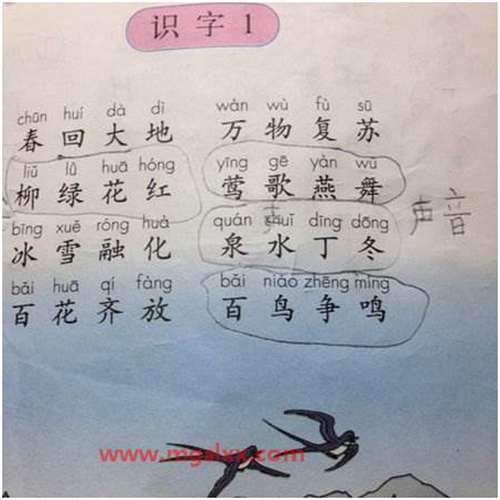 识字 1
chūn huí dà dì wàn wù fù sū
春回大地 万物复苏
liǔ lǜ huā hóng yīng gē yàn wǔ
柳绿花红 莺歌燕舞
bīng xuě róng huà quán shuǐ dīng dōng
冰雪融化 泉水丁冬 声音
bǎi huā qí fàng bǎi niǎo zhēng míng
百花齐放 百鸟争鸣
www.mgalxx.com